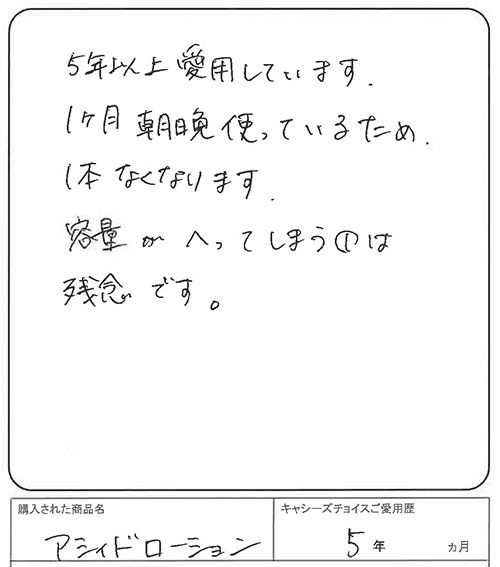 5年以上愛用しています.
1ヶ月朝晩使っているため.
1本なくなります.
容量がへってしまうのは
残念です。
購入された商品名
キャシーズチョイスご愛用歴
アシィドローション
5年 ヵ月